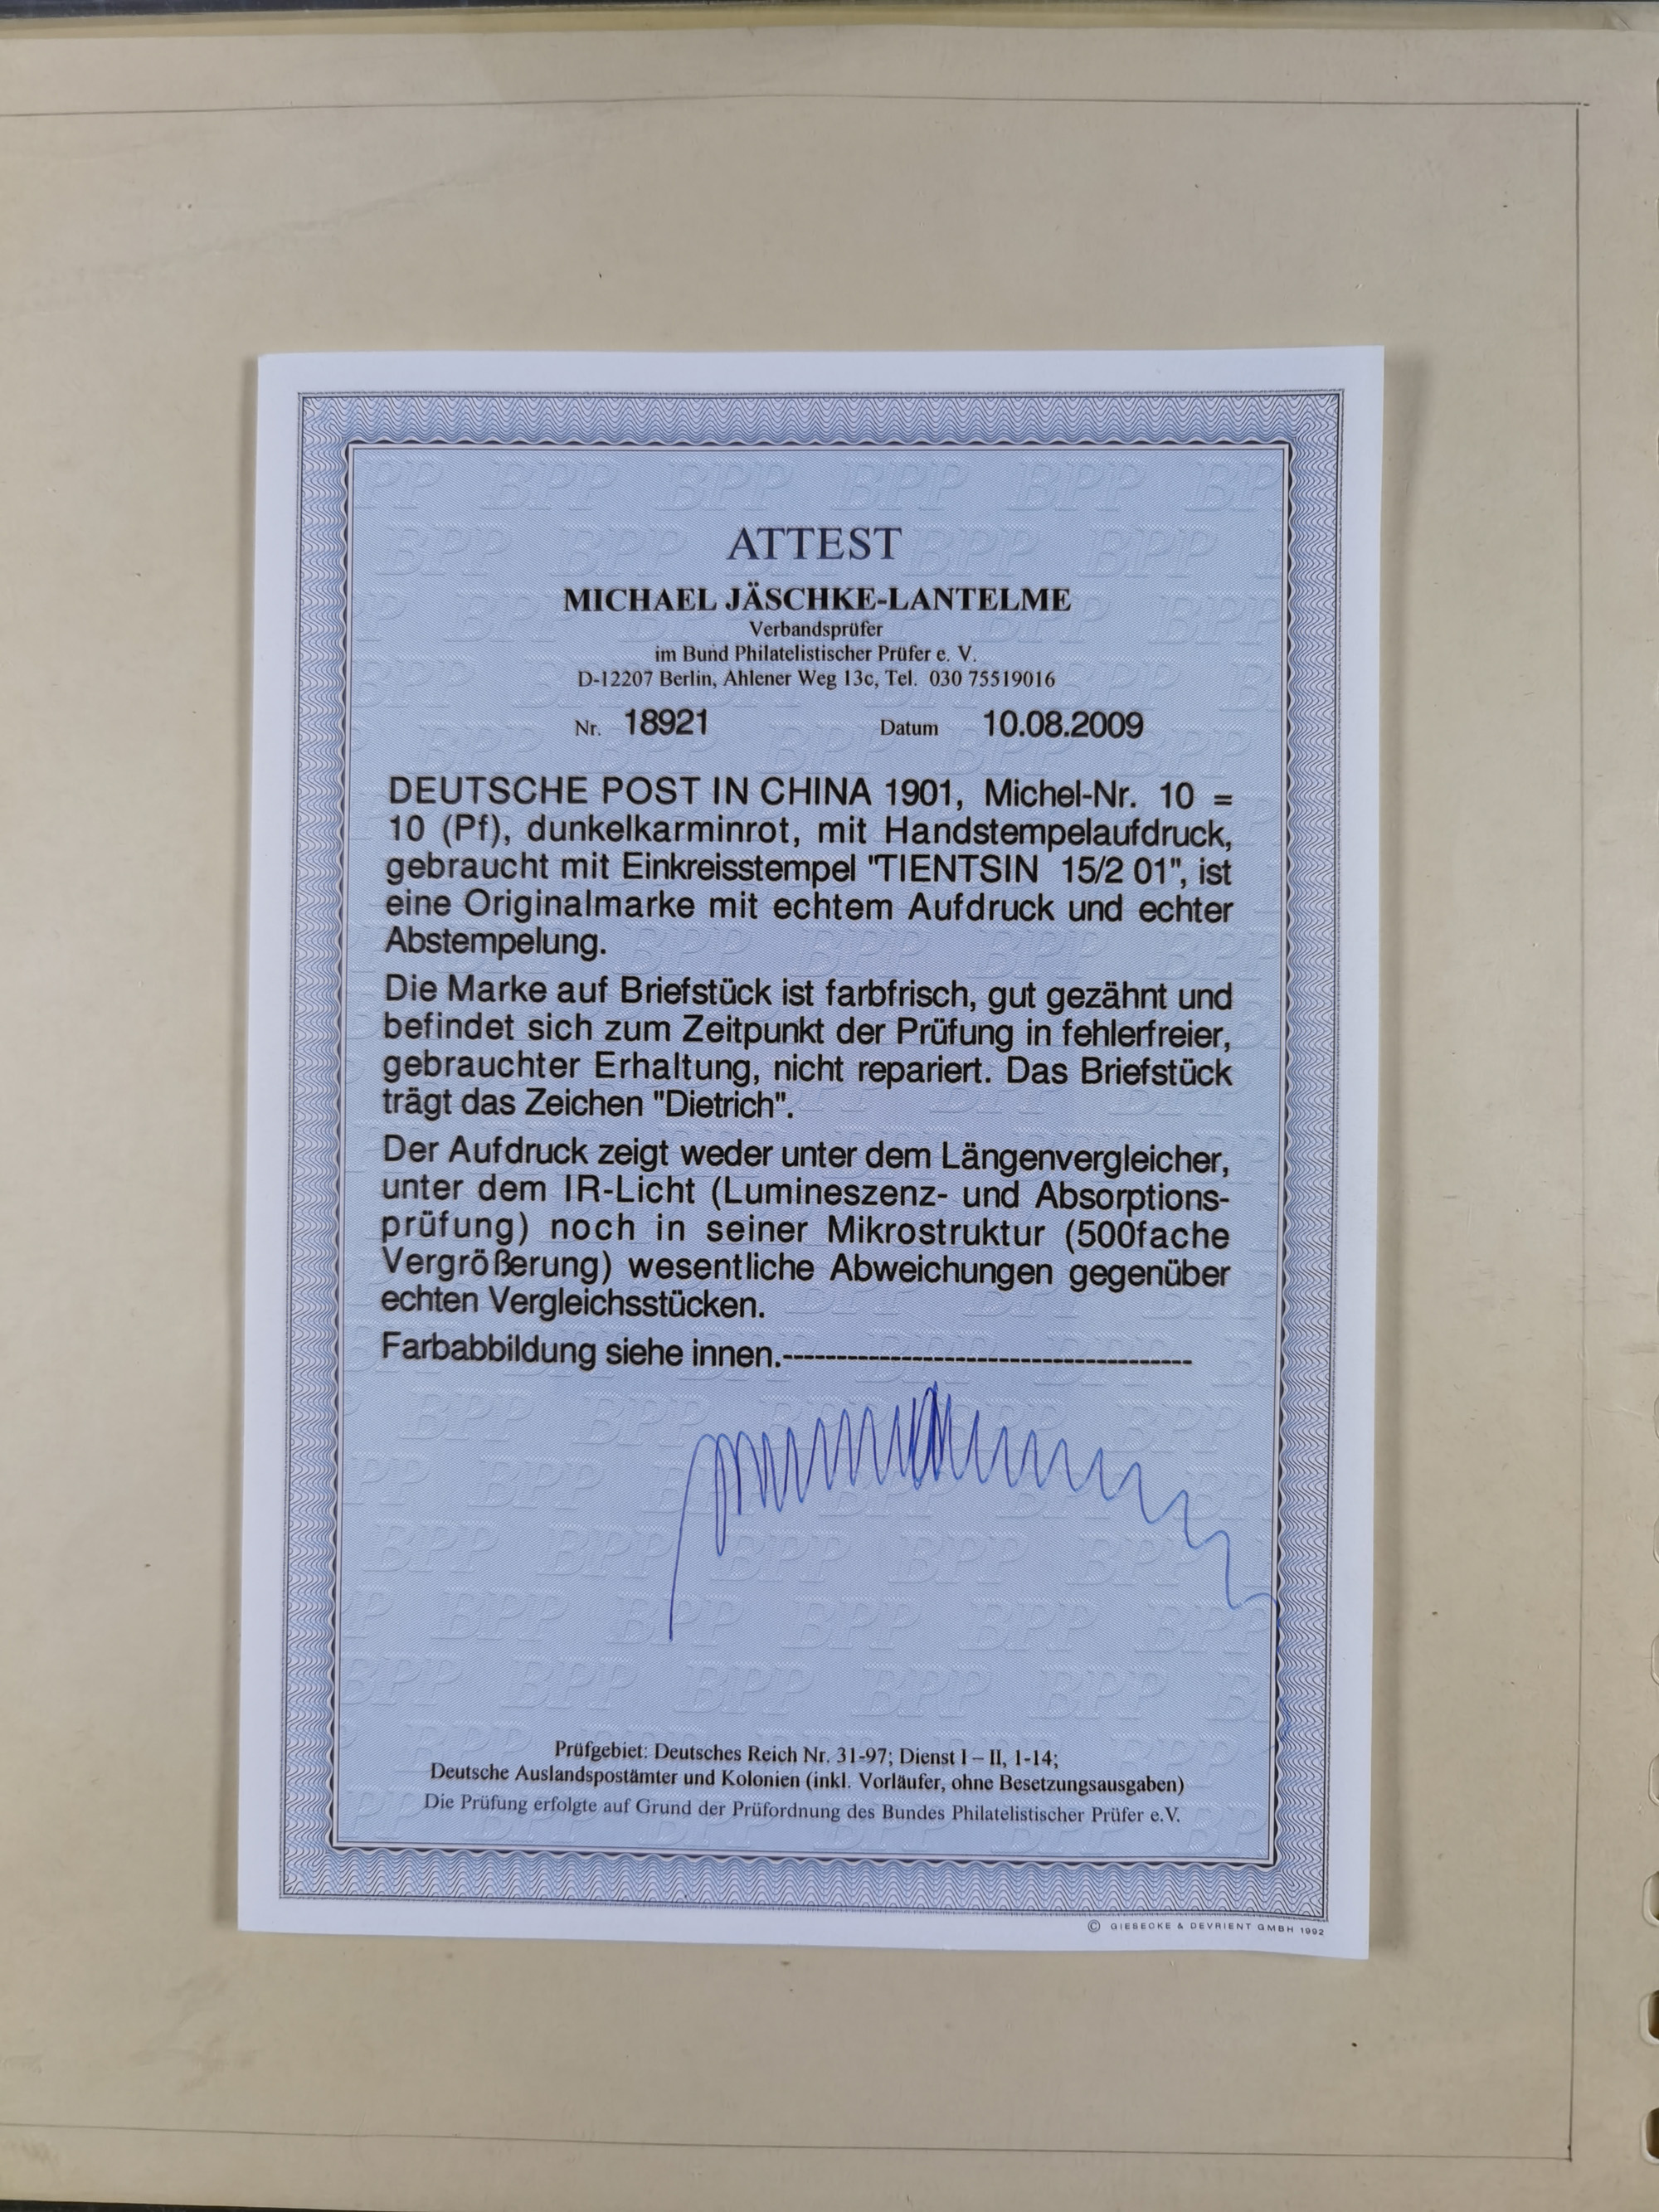 ATTEST
MICHAEL JÄSCHKE-LANTELME
Verbandsprüfer
im Bund Philatelistischer Prüfer e. V.
D-12207 Berlin, Ahlener Weg 13c, Tel. 030 75519016
Nr. 18921 Datum 10.08.2009
DEUTSCHE POST IN CHINA 1901, Michel-Nr. 10 =
10 (Pf), dunkelkarminrot, mit Handstempelaufdruck,
gebraucht mit Einkreisstempel "TIENTSIN 15/2 01", ist
eine Originalmarke mit echtem Aufdruck und echter
Abstempelung.
Die Marke auf Briefstück ist farbfrisch, gut gezähnt und
befindet sich zum Zeitpunkt der Prüfung in fehlerfreier,
gebrauchter Erhaltung, nicht repariert. Das Briefstück
trägt das Zeichen "Dietrich".
Der Aufdruck zeigt weder unter dem Längenvergleicher,
unter dem IR-Licht (Lumineszenz- und Absorptions-
prüfung) noch in seiner Mikrostruktur (500fache
Vergrößerung) wesentliche Abweichungen gegenüber
echten Vergleichsstücken.
Farbabbildung siehe innen.--------------------------------------
Prüfgebiet: Deutsches Reich Nr. 31-97; Dienst I – II, 1-14;
Deutsche Auslandspostämter und Kolonien (inkl. Vorläufer, ohne Besetzungsausgaben)
Die Prüfung erfolgte auf Grund der Prüfordnung des Bundes Philatelistischer Prüfer e.V.
© GIESECKE & DEVRIENT GMBH 1992